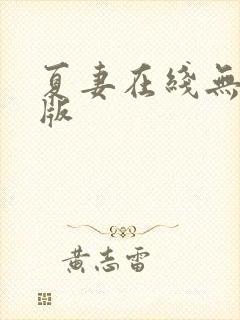 夏妻在綫無
版
黃志雷